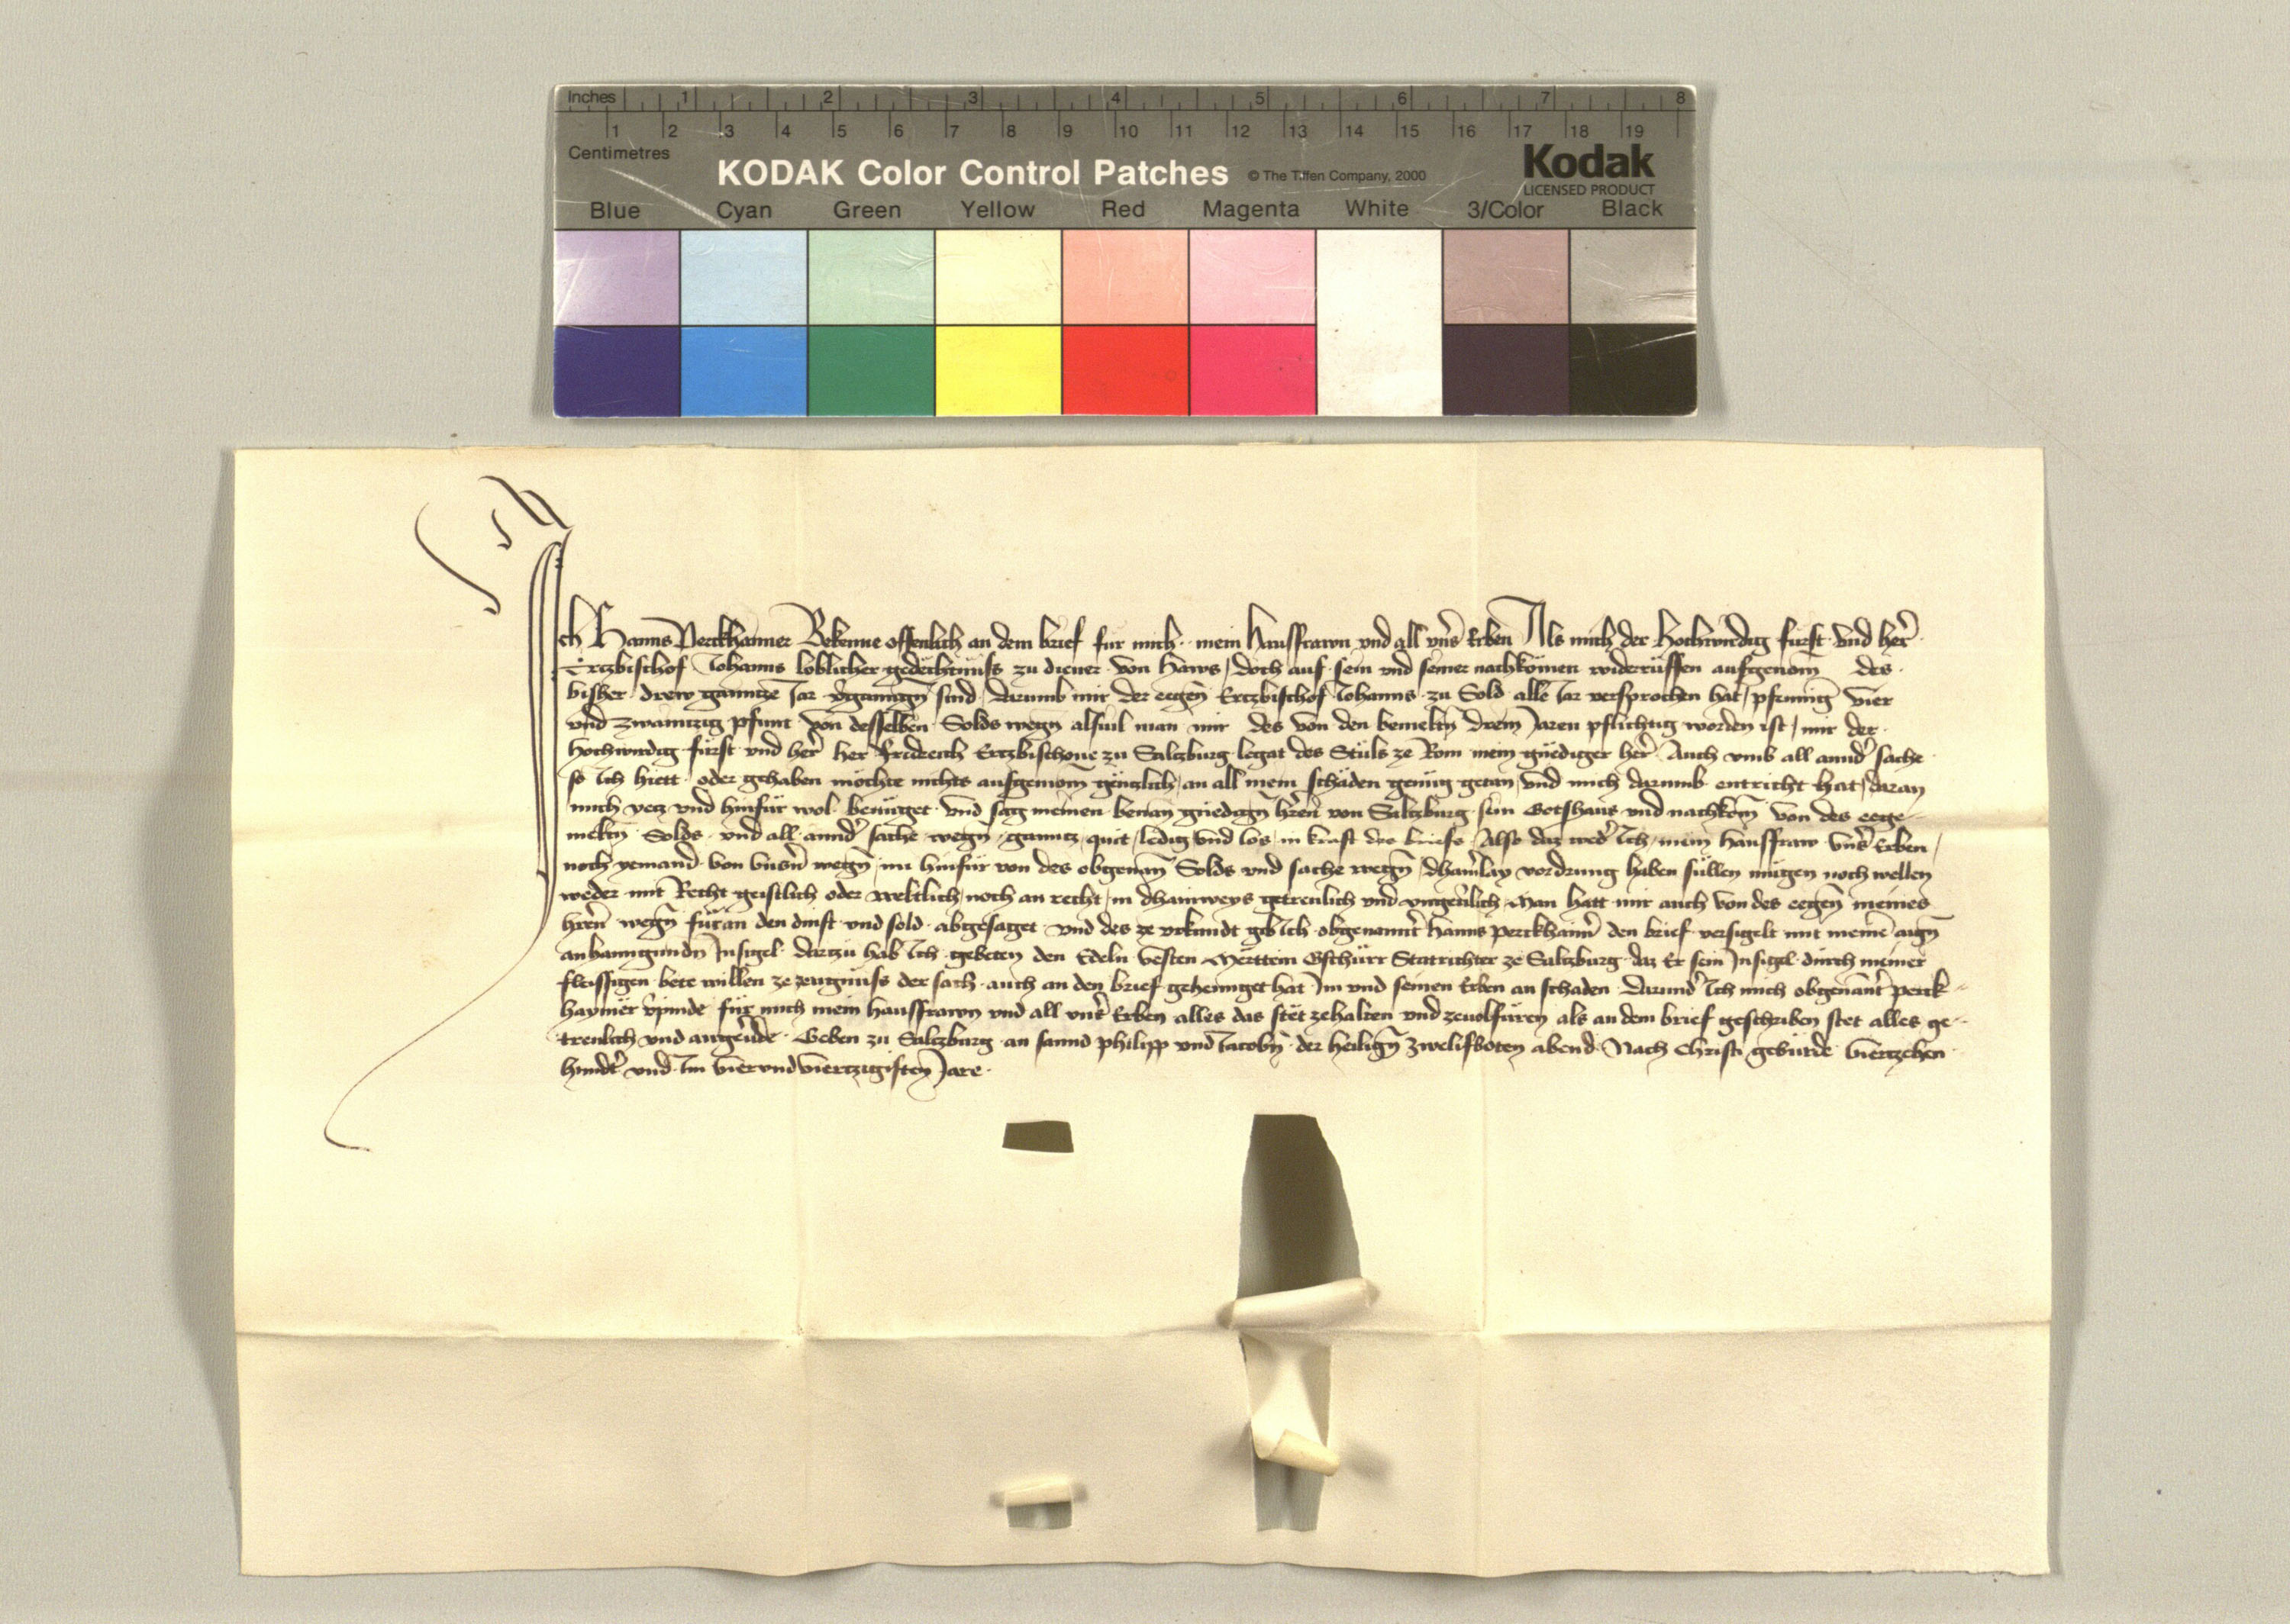 Inches 1 2 3 4 5 6 7 8
1 2 3 4 5 6 7 8 9 10 11 12 13 14 15 16 17 18 19
Centimetres
KODAK Color Control Patches © The Tiffen Company, 2000 Kodak
LICENSED PRODUCT
Blue Cyan Green Yellow Red Magenta White 3/Color Black
Ich Hanns Perckhamer Bekenne offenlich an dem brief für mich mein Hausfrawn vnd all vnser Erben Als mich der Hochwirdig fürst vnd her
Ertzbischof Johanns loblicher gedechtnuss zu diener von Haws / doch auf sein vnd seiner nachkömen widerrüffen aufgenom des
bisher drew ganntze Jar vergangen sind / darumb mir der eegen Ertzbischof Johanns zu Sold alle Jar versprochen hat / pfennig Vier
vnd zwaintzig pfunt von desselben Solds wegn alsuil man mir des von den bemeltn drein Jaren pflichtig worden ist / mir der
Hochwirdig fürst vnd her her Fridreich Ertzbischoue zu Saltzburg legat des Stüls ze Rom mein gnediger her Auch vmb all annder sache
so Ich hiett oder gehaben möchte nichts ausgenom gentzlich / an all mein schäden genüg getan / vnd mich darumb entricht hat / daran
mich yetz vnd hinfür wol benüget Vnd sag meinen benan gnedign hern von Saltzburg sein Gotshaus vnd nachkom von des eege-
meltn Solds vnd all annder sache wegn gantz quit / ledig vnd los in kraft des briefs Also daz weder Ich / mein hausfraw vnser Erben /
noch yemand von vnsern wegn nu hinfür von des obgenan Solds vnd sache wegn / dhainlay vordrung haben süllen mügen noch wellen
weder mit Recht geistlich oder weltlich / noch an recht / in dhainweys getreulich vnd vngeuerlich Man hatt mir auch von des eegen meines
hern wegn füran den dinst vnd sold abgesaget Vnd des ze vrkundt gib Ich obgenannter Hanns Perckhaimer den brief versigelt mit meinem aign
anhanngundn Insigel dartzu hab Ich gebeten den Edeln Vesten Merttein Gschürr Statrichter ze Saltzburg daz Er sein Insigel durch meiner
fleissigen bete willen ze zeugnuss der sach auch an den brief gehennget hat Im vnd seinen Erben an schaden Darunder Ich mich obgenanter Perck-
haymer verpinde für mich mein hausfrawn vnd all vnser Erben alles das stet zehalten vnd zeuolfüren als an dem brief geschriben stet alles ge-
treulich vnd angeuerde Geben zu Saltzburg an sannd Philipp vnd Jacobn der heilign zwelifboten abend Nach Christi gebürde Viertzehen
hundert vnd Im Vierundviertzigisten Jare